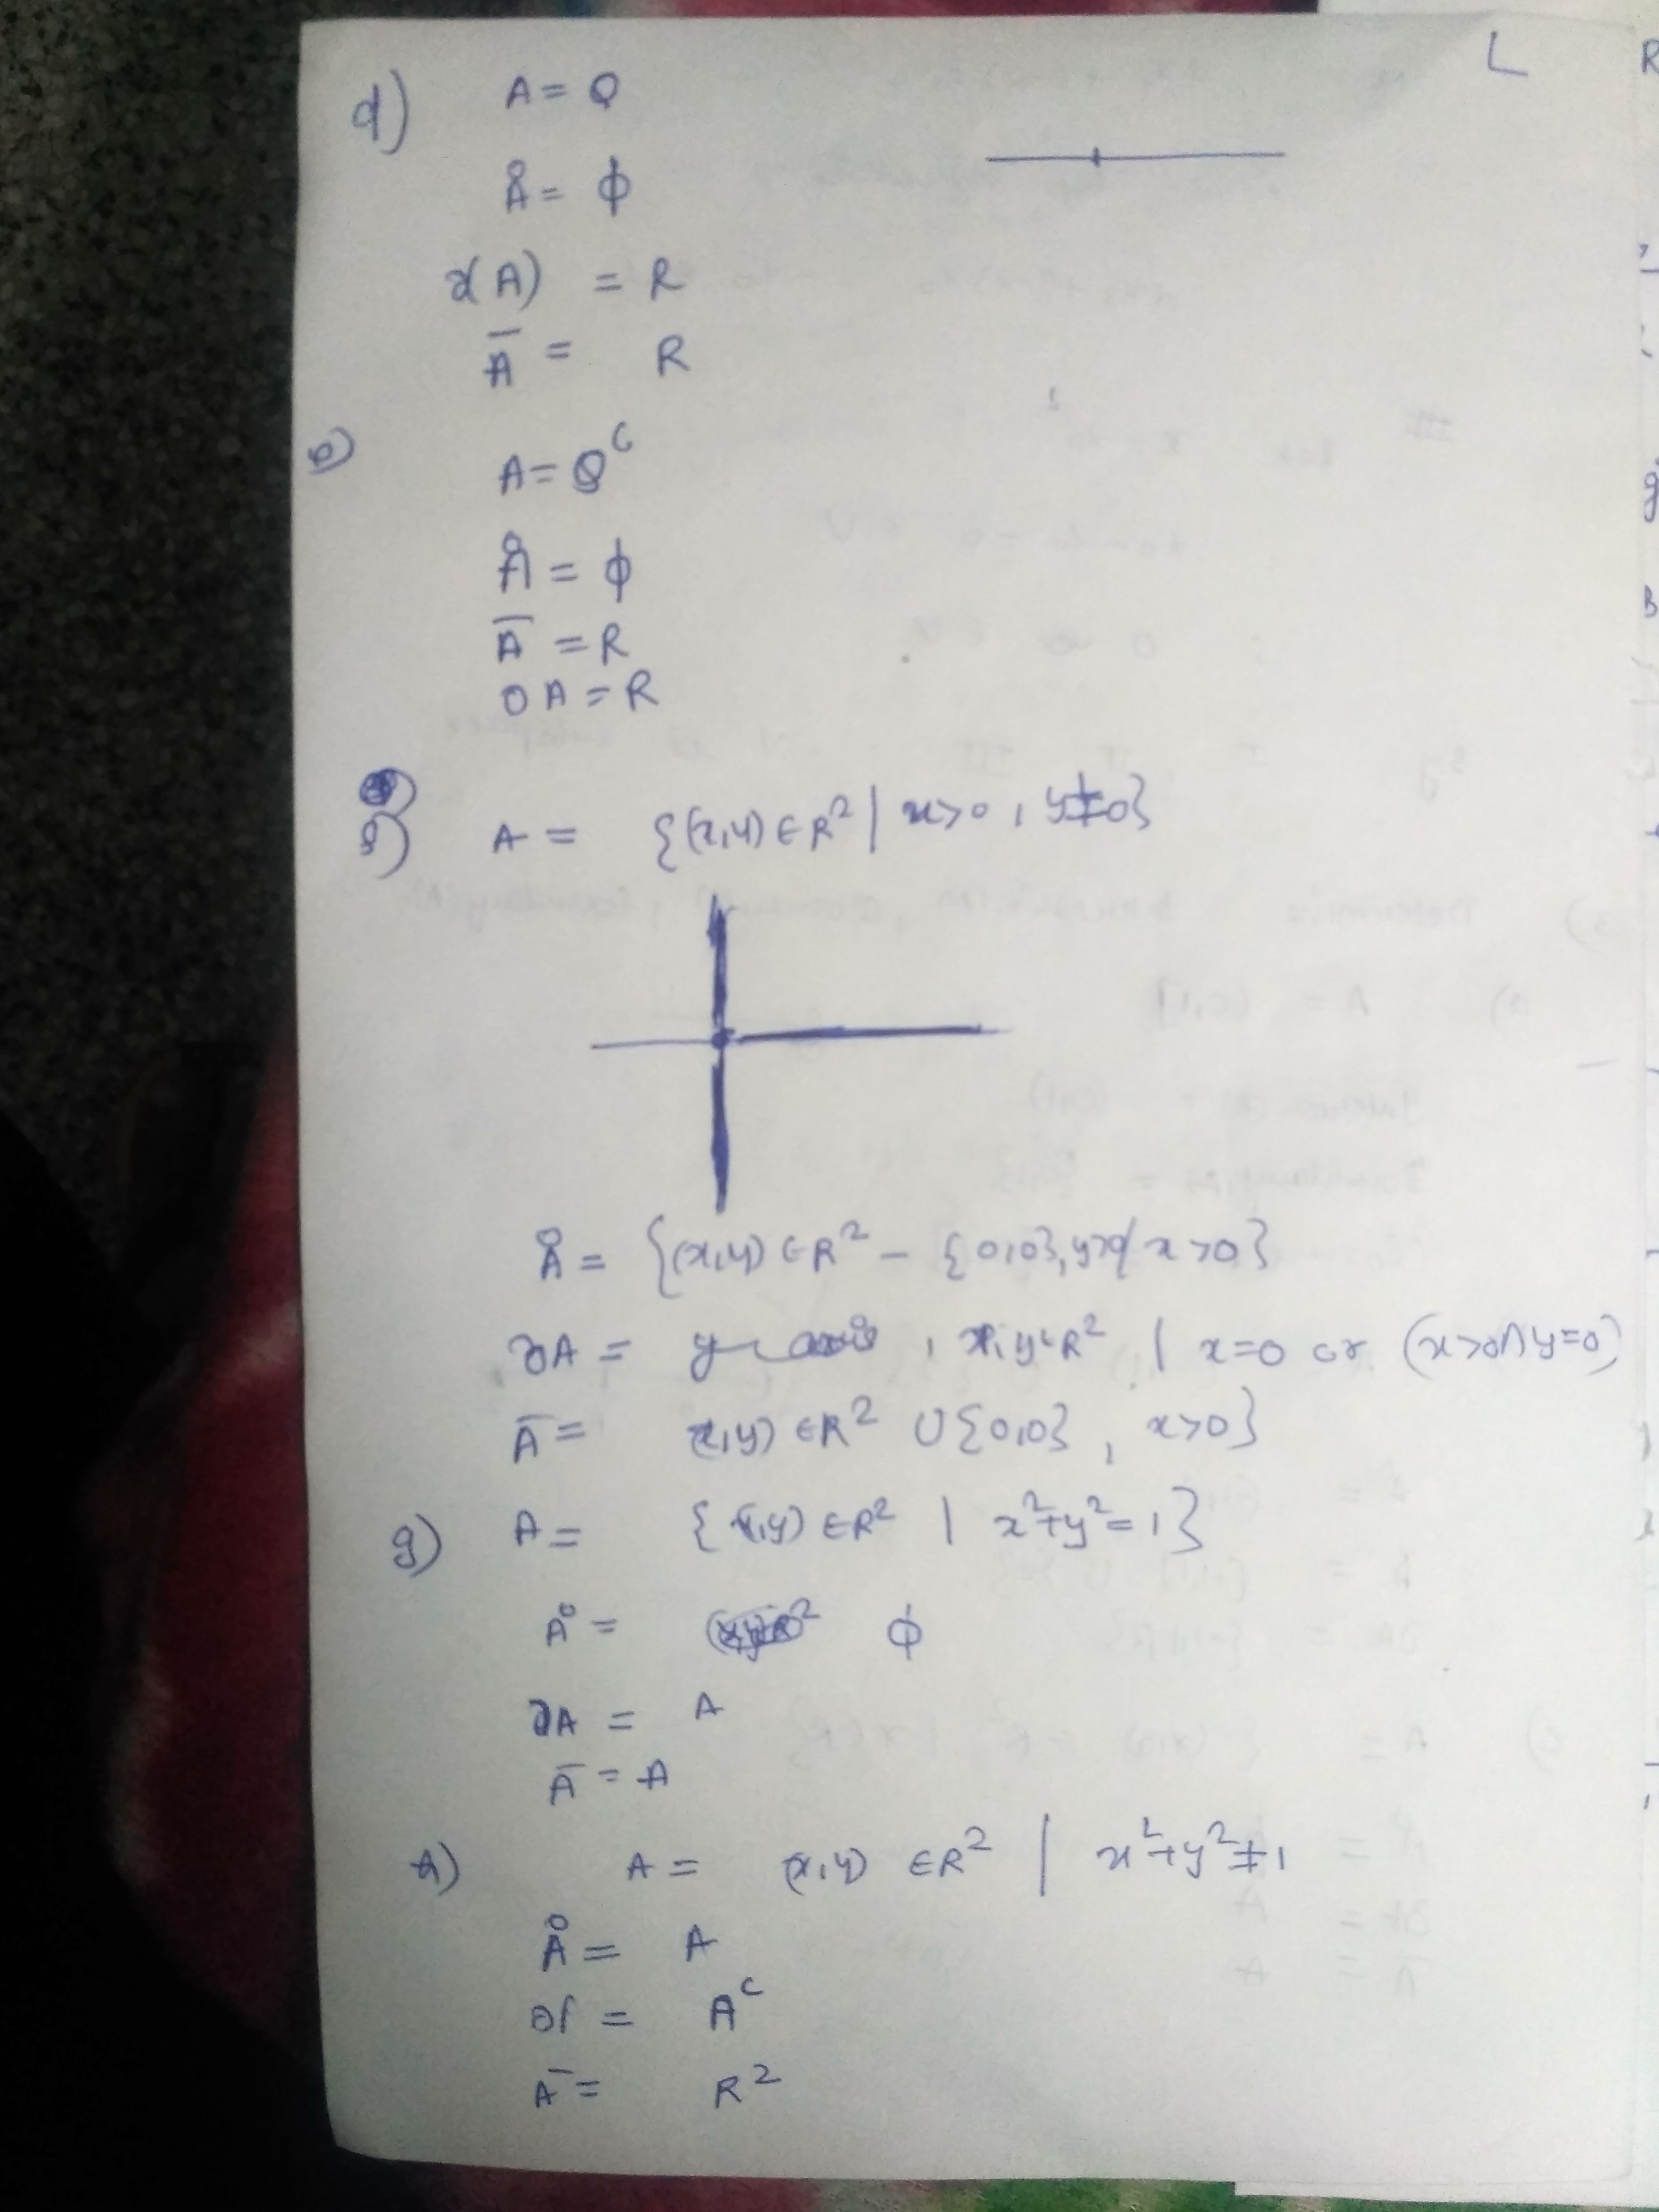 d) A = Q
Å = ϕ
∂(A) = R
A̅ = R
e) A = Q^C
Å = ϕ
A̅ = R
∂A = R
f) A = {(x,y) ∈ R² | x>0, y≠0}
Å = {(x,y) ∈ R² - {0,0}, x>0}
∂A = y-axis, x,y ∈ R² | x=0 or (x>0∩y=0)
A̅ = x,y) ∈ R² ∪ {0,0}, x>0}
g) A = {(x,y) ∈ R² | x²+y²=1}
A° = ϕ
∂A = A
A̅ = A
h) A = (x,y) ∈ R² | x²+y²≠1
Å = A
∂A = A^C
A̅ = R²